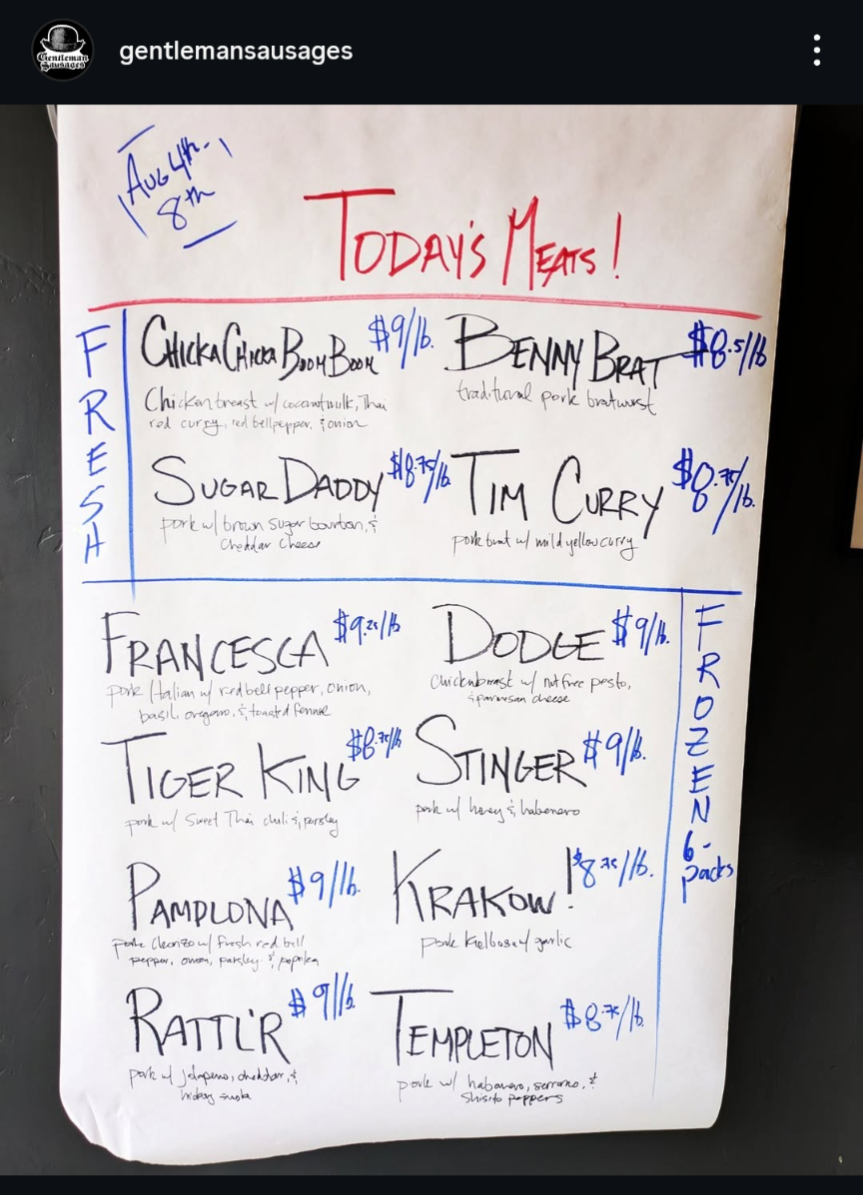 gentlemansausages
Gentleman
Sausages
Aug 4th-
8th
Today's Meats!
FRESH
Chicka Chicka Boom Boom $9/lb.
Chicken breast w/ coconut milk, Thai
red curry, red bell pepper, & onion
Benny Brat $8.5/lb
traditional pork bratwurst
Sugar Daddy $8.75/lb
pork w/ brown sugar bourbon, &
cheddar cheese
Tim Curry $8.75/lb.
pork brat w/ mild yellow curry
FROZEN
6-
packs
Francesca $9.25/lb
pork Italian w/ red bell pepper, onion,
basil, oregano, & toasted
Dodge $9/lb.
Chicken breast w/ nut free pesto,
& parmesan cheese
Tiger King $8.75/lb
pork w/ Sweet Thai chili & parsley
Stinger $9/lb.
pork w/ honey & habanero
Pamplona $9/lb.
pork w/ fresh red bell
pepper, onion, parsley & paprika
Krakow! $8.75/lb.
pork w/ garlic
Rattl'r $9/lb.
pork w/ jalapeno, cheddar, &
Templeton $8.75/lb.
pork w/ habanero, serrano, &
shisito peppers